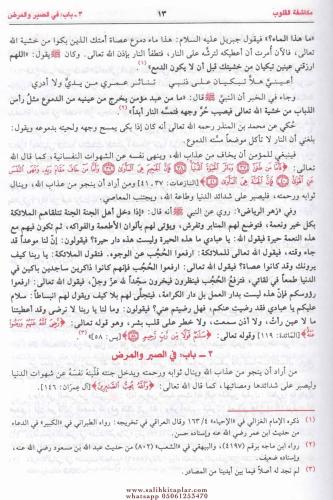 مكاشفة القلوب ١٣ ٣ - باب: في الصبر والمرض
«ما هذا الماء؟» فيقول جبريل عليه السلام: هذا ماء دموع عصاة أمتك الذين بكوا من خشية الله
تعالى، فالآن أمرت أن أعطيكه لترشه على النار، فتطفأ النار بإذن الله تعالى. وكان ﷺ يقول: «اللهم
ارزقني عينين تبكيان من خشيتك قبل أن لا يكون الدمع»:
أعيني هلا تبكيان على ذنبي تناثر عمري من يدي ولا أدري
وجاء في الخبر أن النبي ﷺ قال: «ما من عبد مؤمن يخرج من عينيه من الدموع مثل رأس
الذباب من خشية الله تعالى فيصيب حر وجهه فتمسه النار أبداً»
حكي عن محمد بن المنذر رحمه الله تعالى أنه كان إذا بكى يمسح وجهه ولحيته بدموعه ويقول:
بلغني أن النار لا تأكل موضعاً مسته الدموع.
فينبغي للمؤمن أن يخاف من عذاب الله، وينهى نفسه عن الشهوات النفسانية، كما قال الله
[النازعات: ٣٧، ٤١] ومن أراد أن ينجو من عذاب الله، وينال
ثوابه ورحمته، فليصبر على شدائد الدنيا وطاعة الله، ويجتنب المعاصي.
وفي «زهر الرياض»: روي عن النبي ﷺ أنه قال: «إذا دخل أهل الجنة الجنة تتلقاهم الملائكة
بكل خير ونعمة، فتوضع لهم المنابر وتفرش، ويؤتى لهم بألوان الأطعمة والفواكه، ثم تكون فيهم مع
هذه النعمة حيرة فيقول الله: يا عبادي ما هذه الحيرة وليست هذه دار حيرة؟ فيقولون: إن لنا موعداً قد
جاء وقته، فيقول الله تعالى للملائكة: ارفعوا الحُجُب عن الوجوه. فتقول الملائكة: يا ربنا كيف
يرونك وقد كانوا عصاة؟ فيقول الله تعالى: ارفعوا الحُجُب فإنهم كانوا ذاكرين ساجدين باكين في
الدنيا طمعاً في لقائي، فترفع الحُجُب فينظرون فيخرون سجّداً لله عزّ وجلّ، فيقول الله تعالى: ارفعوا
رؤوسكم فإنّ هذه ليست بدار العمل بل دار الكرامة، فيتجلى لهم بلا كيف ويقول لهم انبساطاً: سلام
عليكم يا عبادي فقد رضيت عنكم، فهل رضيتم عني؟ فيقولون: وما لنا يا ربنا لا نرضى وقد أعطيتنا
ما لا عين رأت، ولا أذن سمعت، ولا خطر على قلب بشر، وهو قوله تعالى: ﴿رَّضِيَ اللَّهُ عَنْهُمْ وَرَضُوا
عَنْهُ﴾ [المائدة: ١١٩] وقوله تعالى: ﴿سَلَامٌ قَوْلًا مِن رَّبٍّ رَّحِيمٍ﴾ [يس: ٥٨]» (٣)
٣ - باب: في الصبر والمرض
من أراد أن ينجو من عذاب الله وينال ثوابه ورحمته ويدخل جنته فلينه نفسه عن شهوات الدنيا
وليصبر على شدائدها ومصائبها، كما قال الله تعالى: ﴿وَاللَّهُ يُحِبُّ الصَّابِرِينَ﴾ [آل عمران: ١٤٦].
(١) ذكره الإمام الغزالي في «الإحياء» ١٦٣/٤ وقال العراقي في تخريجه: رواه الطبراني في «الكبير» في الدعاء
من حديث ابن عمر رضي الله عنه وإسناده حسن.
(٢) رواه ابن ماجه برقم (٤١٩٧)، والبيهقي في «الشعب» (٨٠٢) من حديث عبد الله بن مسعود رضي الله عنه،
وإسناده ضعيف.
(٣) لم نجد له أصلاً فيما بين أيدينا من المصادر.
www.salihkitaplar.com
whatsapp 05061253470